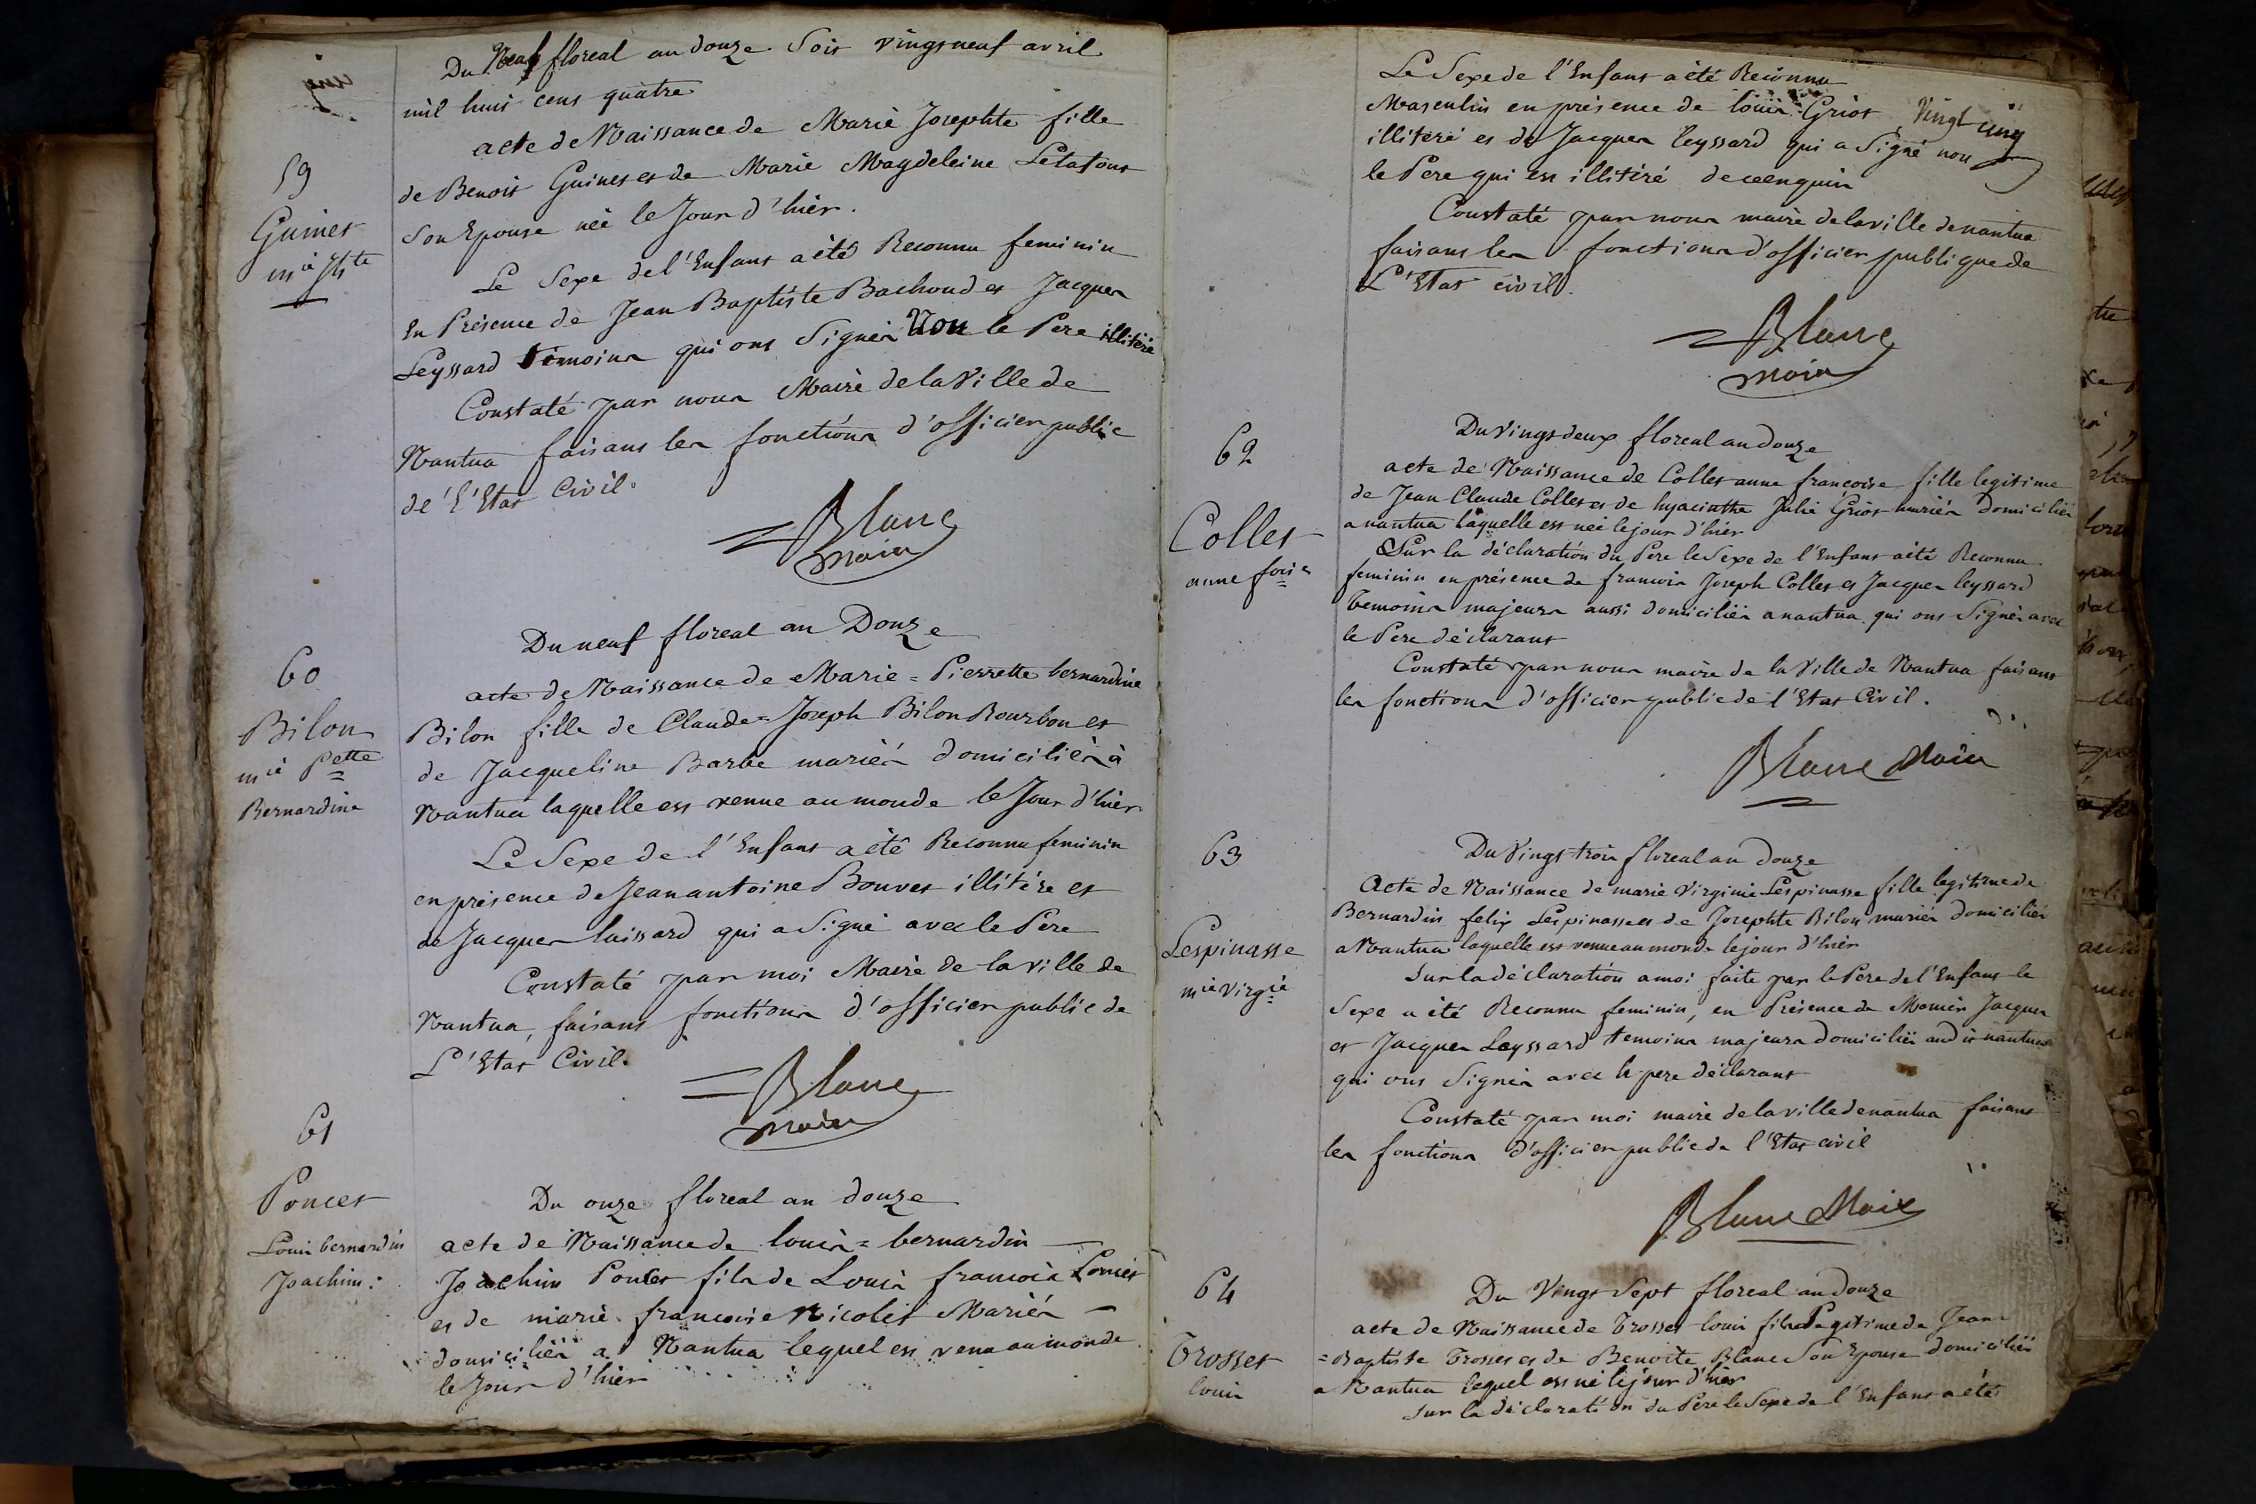 Du Neuf floreal an douze Soit vingt neuf avril
mil huit cent quatre
acte de Naissance de Marie Josephte fille
de Benoit Guinet et de Marie Magdeleine
Son Epouse née le Jour d'hier.
59
Guinet
mie Jhte
Le Sexe de l'Enfant a été Reconnu feminin
En Présence de Jean Baptiste Bachoud et Jacques
Leyssard témoins qui ont Signés Non le Pere illitéré
Constaté par nous Maire de la Ville de
Nantua faisant les fonctions d'officier public
de l'Etat Civil.
Blanc
maire
Du neuf floreal an Douze
60
Bilon
mie Pette
Bernardine
acte de Naissance de Marie = Pierrette bernardine
Bilon fille de Claude = Joseph Bilon Bourbon et
de Jacqueline Barbe mariés domiciliés à
Nantua laquelle est venue au monde le Jour d'hier
Le Sexe de l'Enfant a été Reconnu feminin
en présence de Jean antoine Bouvet illitére et
de Jacques laissard qui a Signé avec le Pere
Constaté par moi Maire de la ville de
Nantua, faisant fonctions d'officier public de
L'Etat Civil.
Blanc
maire
61
Poncet
Louis bernardin
Joachim :
Du onze floreal an douze
acte de Naissance de louis = bernardin
Joachim Poncet fils de Louis francois Poncet
et de marie francoise Nicolet Mariés
domiciliés a Nantua lequel est venu au monde
le Jour d'hier
Le Sexe de l'Enfant a été Reconnu
Masculin en présence de louis Griot
Vingt cinq
illiteré et de Jacques leyssard qui a Signé non
le Pere qui est illitéré de ce enquis
Constaté par nous maire de la ville de nantua
faisant les fonctions d'officier publique de
L'Etat civil.
Blanc
maire
62
Collet
anne foise
Du Vingt deux floreal an douze
acte de Naissance de Collet anne francoise fille legitime
de Jean Claude Collet et de hyacinthe Julie Griot mariés domiciliés
a nantua laquelle est née le jour d'hier
Sur la déclaration du Pere le Sexe de l'Enfant a été Reconnu
feminin en présence de francois Joseph Collet et Jacques leyssard
temoins majeurs aussi domiciliés a nantua qui ont Signés avec
le Pere déclarant
Constaté par nous maire de la Ville de Nantua faisant
les fonctions d'officier public de l'Etat Civil.
Blanc Maire
63
Lespinasse
mie Virgie
Du Vingt trois floreal an douze
Acte de Naissance de marie Virginie Lespinasse fille legitime de
Bernardin felix Lespinasse et de Josephte Bilon mariés domiciliés
a Nantua laquelle est venue au monde le jour d'hier
Sur la déclaration a moi faite par le Pere de l'Enfant le
Sexe a été Reconnu feminin, en Présence de Monier Jacques
et Jacques Leyssard temoins majeurs domiciliés audit nantua
qui ont Signés avec le pere déclarant
Constaté par moi maire de la ville de nantua faisant
les fonctions d'officier public de l'Etat civil
Blanc Maire
64
Trosset
louis
Du Vingt Sept floreal an douze
acte de Naissance de Trosset louis fils Legitime de Jean
= Baptiste Trosset et de Benoite Blanc Son Epouse domiciliés
a Nantua lequel est né le jour d'hier
Sur la déclaration du Pere le Sexe de l'Enfant a été